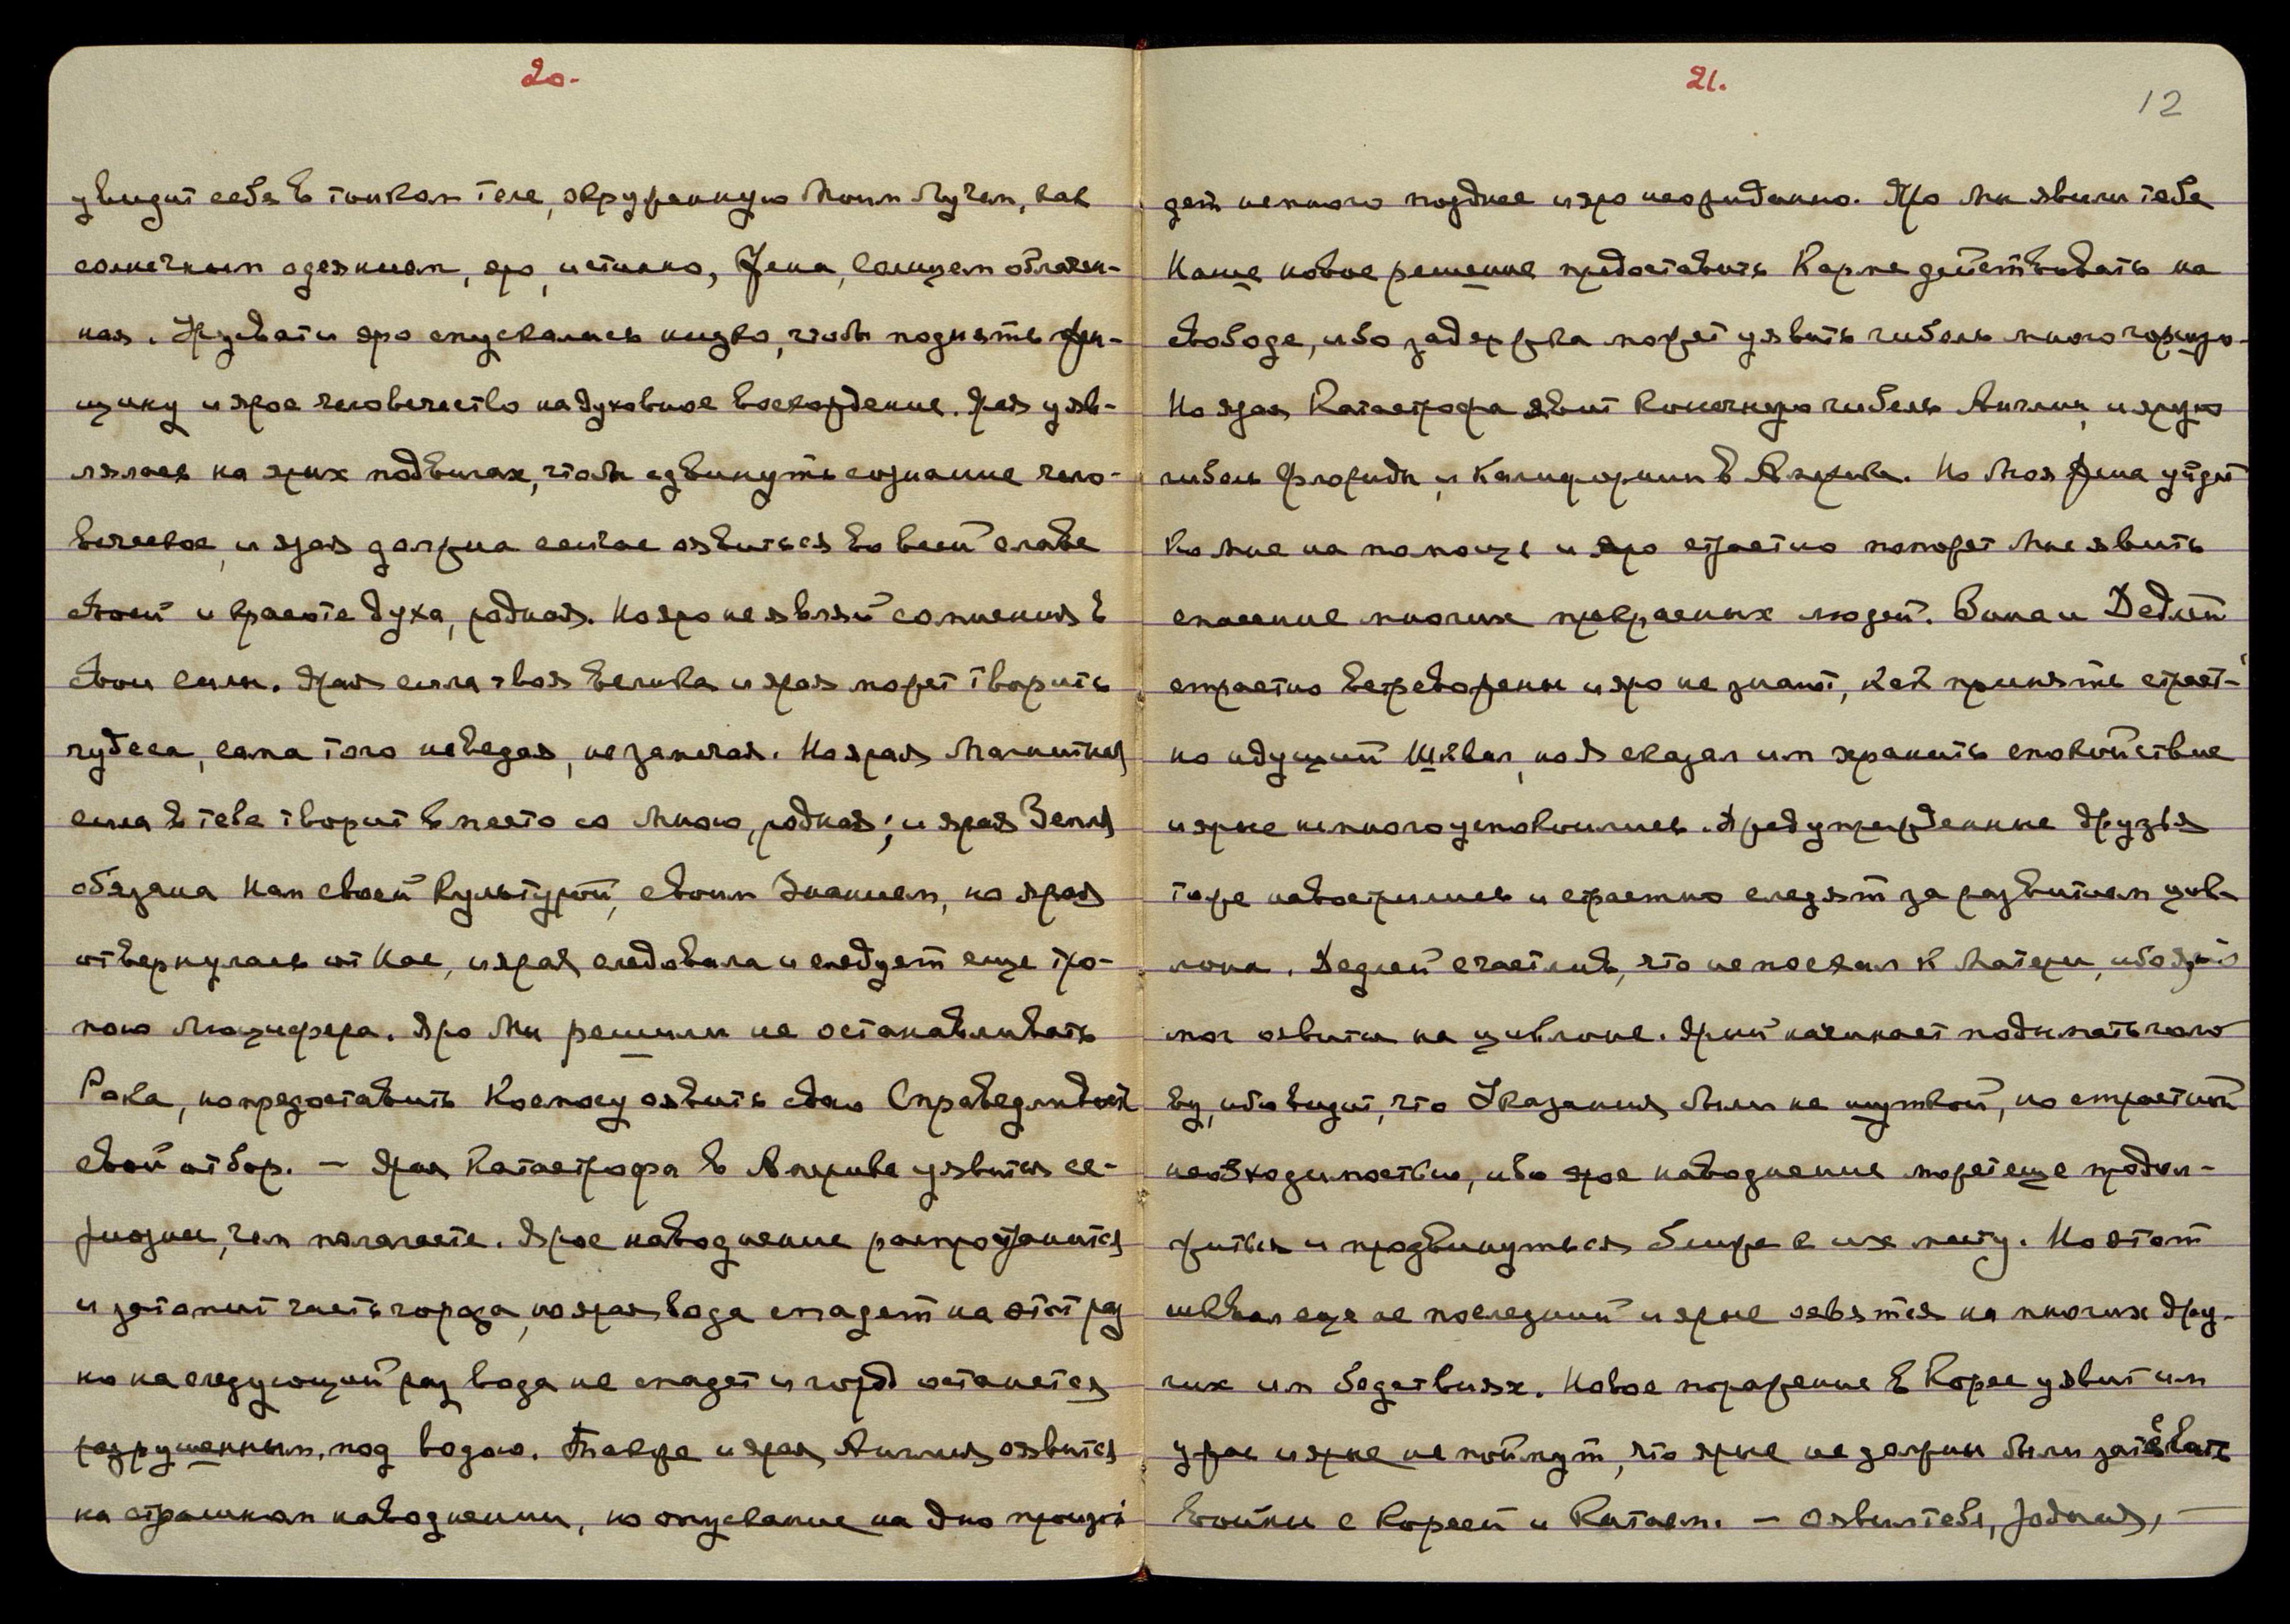 20.
увидит себя в тонком теле, окруженную Моим Лучем, как
солнечным одеянием, яро, истинно, Жена, Солнцем облачен-
ная. И яро спускались низко, чтобы поднять жен-
щину и ярое человечество на духовное восхождение. Ярая уяв-
лялась на ярых подвигах, чтобы сдвинуть сознание чело-
веческое, и ярая должна сейчас оявиться во всей славе
своей и красоте духа, родная. Но яро не являй сомнения в
свои силы. Ярая сила твоя велика и ярая может творить
чудеса, сама того не ведая, не замечая. Но ярая Магнитная
сила в тебе творит вместо со Мною, родная; и ярая Земля
обязана Нам своей Культурой, своим Знанием, но ярая
отвернулась от Нас, и ярая следовала и следует еще тро-
пою Люцифера. Яро Мы решили не останавливать
Рока, но предоставить Космосу оявить свою Справедливость
свой отбор. — Ярая Катастрофа в Америке уявится се-
риознее, чем полагаете. Ярое наводнение распространится
и затопит часть города, но ярая вода спадет на этот раз
но на следующий раз вода не спадет и город останется
разрушенным, под водою. Также и ярая Англия оявится
на страшном наводнении, но опускание на дно произой
21.
12
дет немного позднее и яро неожиданно. Яро Мы явили тебе
Наше новое решение предоставить Карме действовать на
свободе, ибо задержка может уявить гибель много горшую.
Но ярая Катастрофа явит конечную гибель Англии, и ярую
гибель Флориды и Калифорнии в Америке. Но Моя Жена уйдет
ко Мне на помощь и яро страстно поможет Мне явить
спасение многих прекрасных людей. Зина и Дедлей
страстно встревожены и яро не знают, как принять страст-
но идущий Шквал, но Я сказал им хранить спокойствие
и ярые немного успокоились. Предупрежденные друзья
тоже навострились и страстно следят за развитием цик-
лона. Дедлей счастлив, что не поехал к Матери, ибо ярый
мог оявиться на циклоне. Ярый начинает подымать голо
ву, ибо видит, что Указания были не шуткой, но страстной
необходимостью, ибо ярое наводнение может еще продол-
житься и продвинуться ближе к их месту. Но этот
шквал еще не последний и ярые оявятся на многих дру-
гих им бедствиях. Новое поражение в Корее уявит им
ужас и ярые не поймут, что ярые не должны были затевать
войны с Кореей и Китаем. — Оявил тебе, родная, —